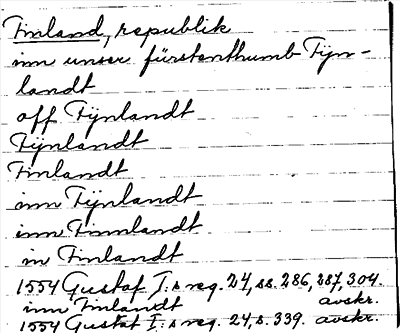 Finland, republik
inn unser fürstenthumb Fÿn-
landt
off Fÿnlandt
Fÿnlandt
Finlandt
inn Fÿnlandt
inn Finnlandt
in Finlandt
1554 Gustaf I:s reg. 24, ss. 286, 287, 304.
inn Finlandt avskr.
1554 Gustaf I:s reg. 24, s. 339. avskr.